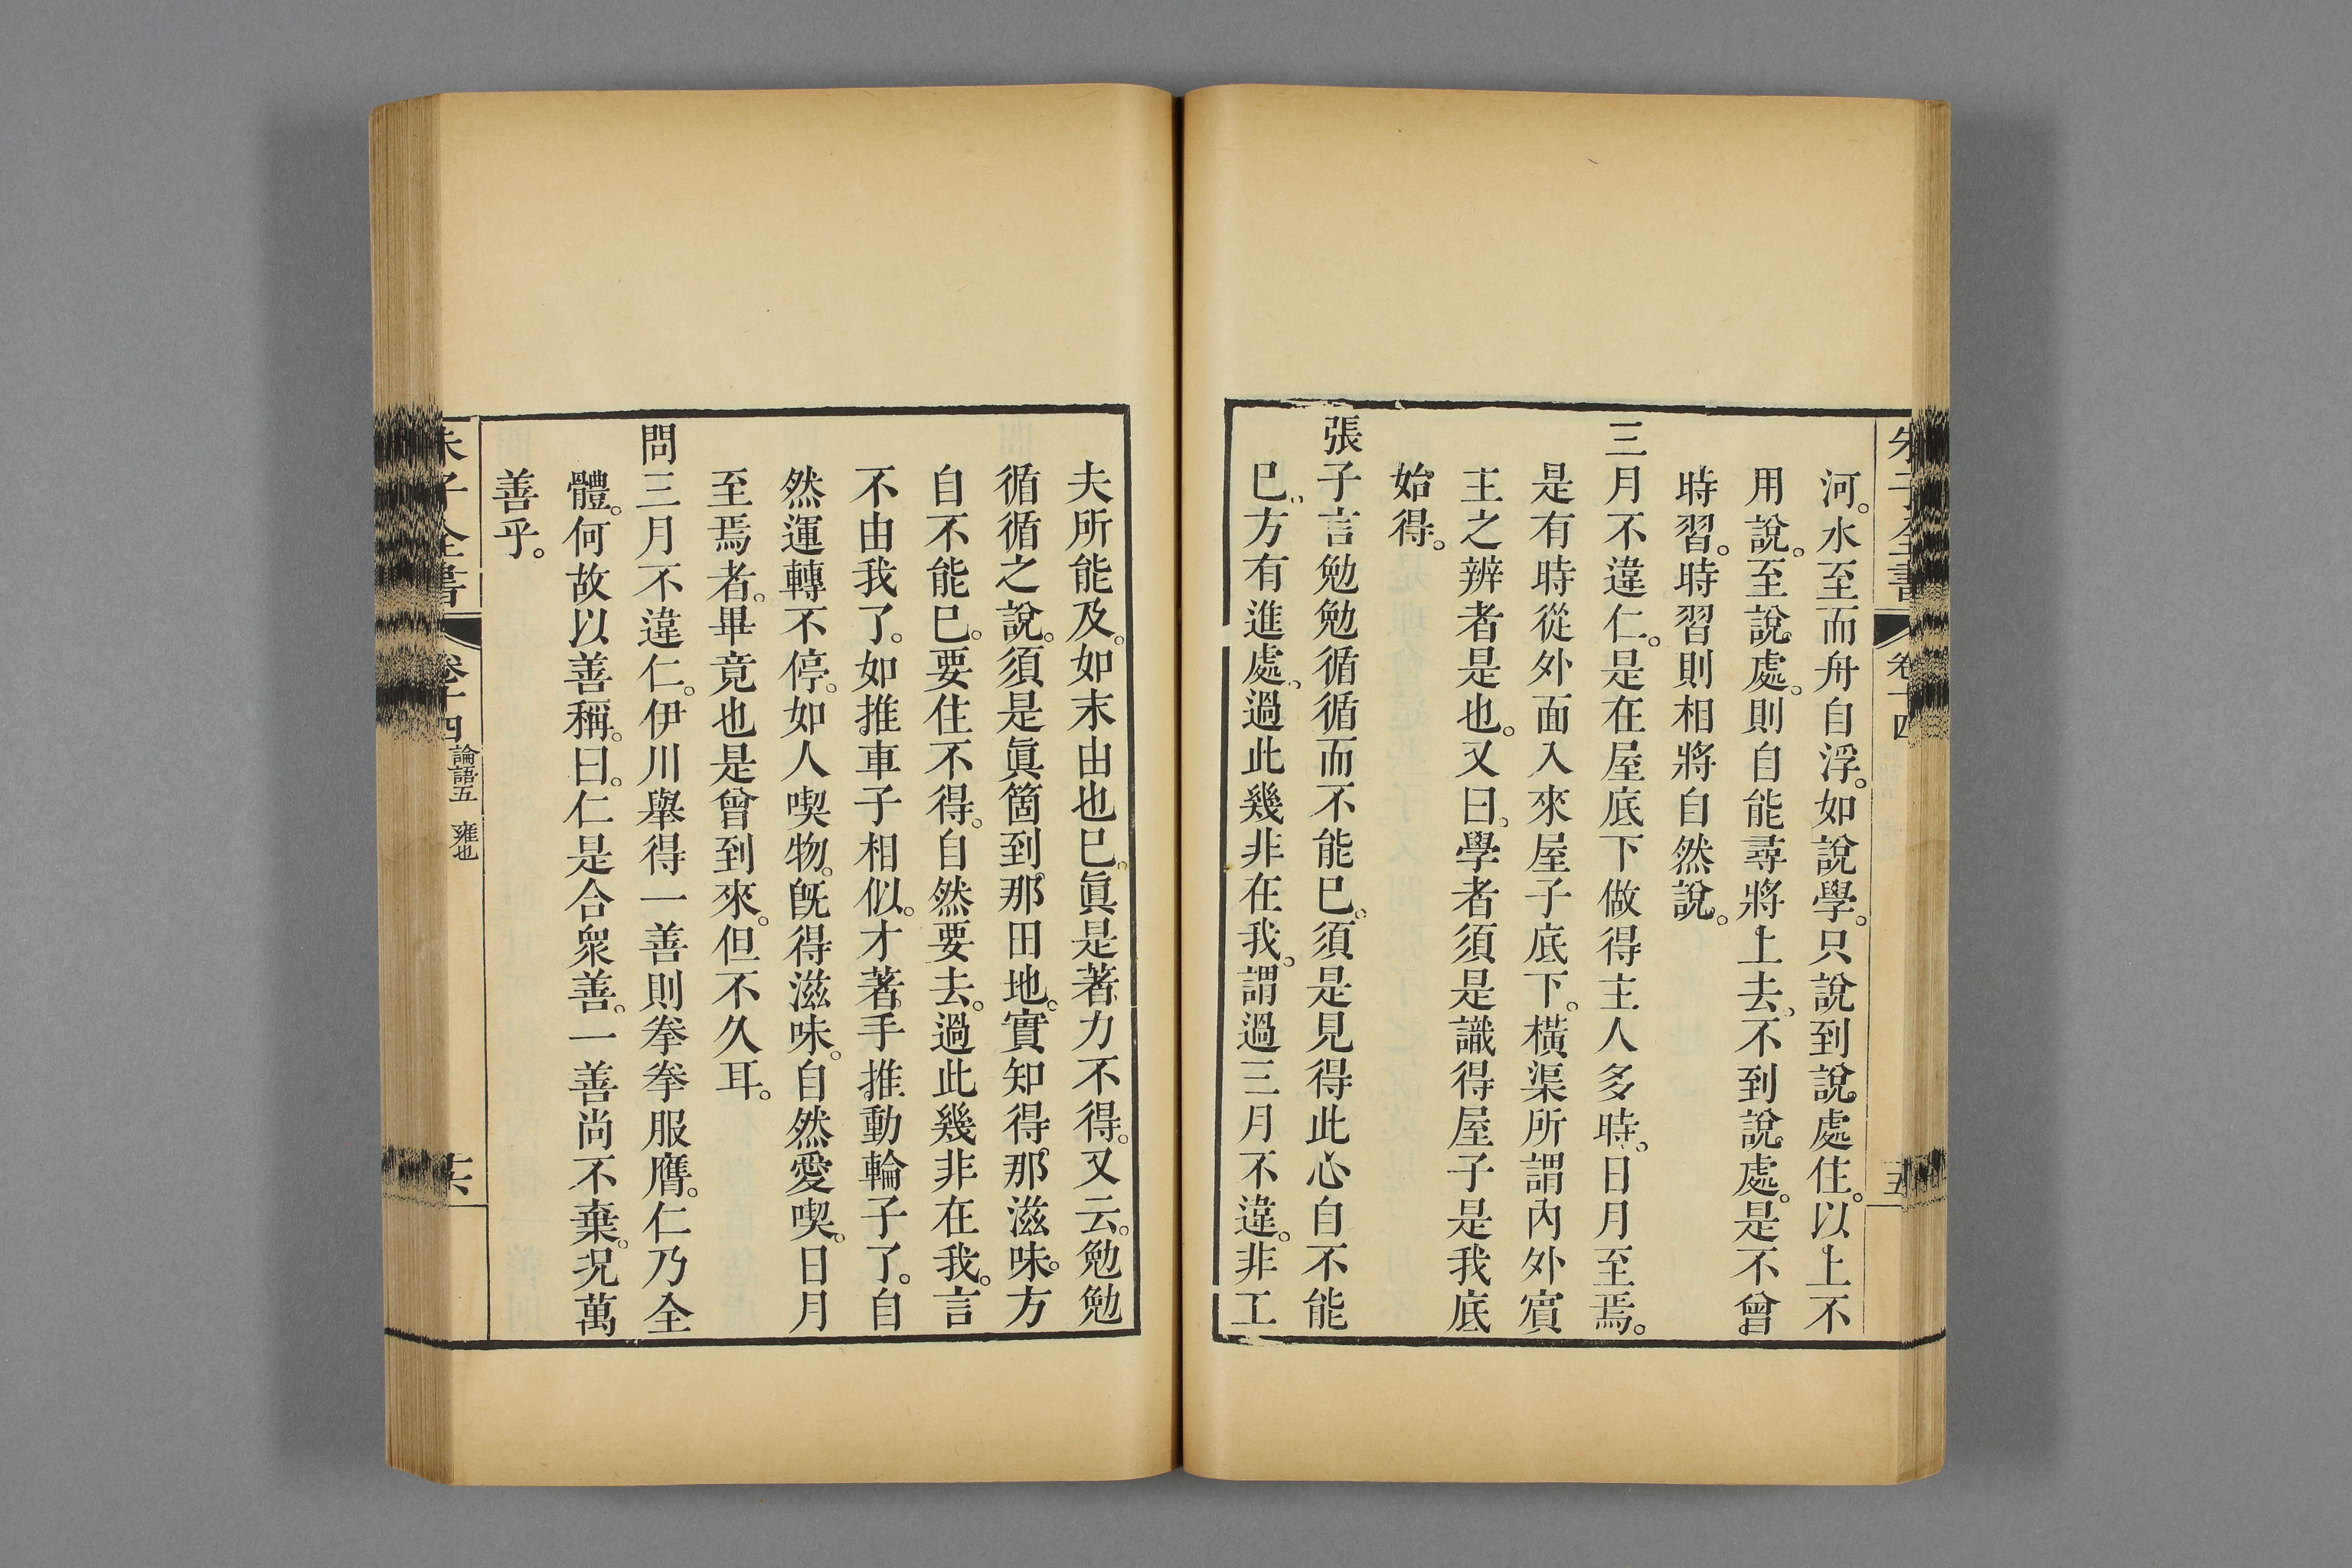 朱子全書 卷十四
河。水至而舟自浮。如說學。只說到說處住。以上不
用說。至說處。則自能尋將上去。不到說處。是不曾
時習。時習則相將自然說。
三月不違仁。是在屋底下做得主人多時。日月至焉。
是有時從外面入來屋子底下。橫渠所謂內外賓
主之辨者是也。又曰。學者須是識得屋子是我底
始得。
張子言勉勉循循而不能已。須是見得此心自不能
已。方有進處。過此幾非在我。謂過三月不違。非工
夫所能及。如末由也已。眞是著力不得。又云。勉勉
循循之說。須是眞箇到那田地。實知得那滋味。方
自不能已。要住不得。自然要去。過此幾非在我。言
不由我了。如推車子相似。才著手推動輪子了。自
然運轉不停。如人喫物。旣得滋味。自然愛喫。日月
至焉者。畢竟也是曾到來。但不久耳。
問三月不違仁。伊川舉得一善則拳拳服膺。仁乃全
體。何故以善稱。曰。仁是合衆善。一善尚不棄。況萬
善乎。
朱子全書 卷十四 論語五 雍也